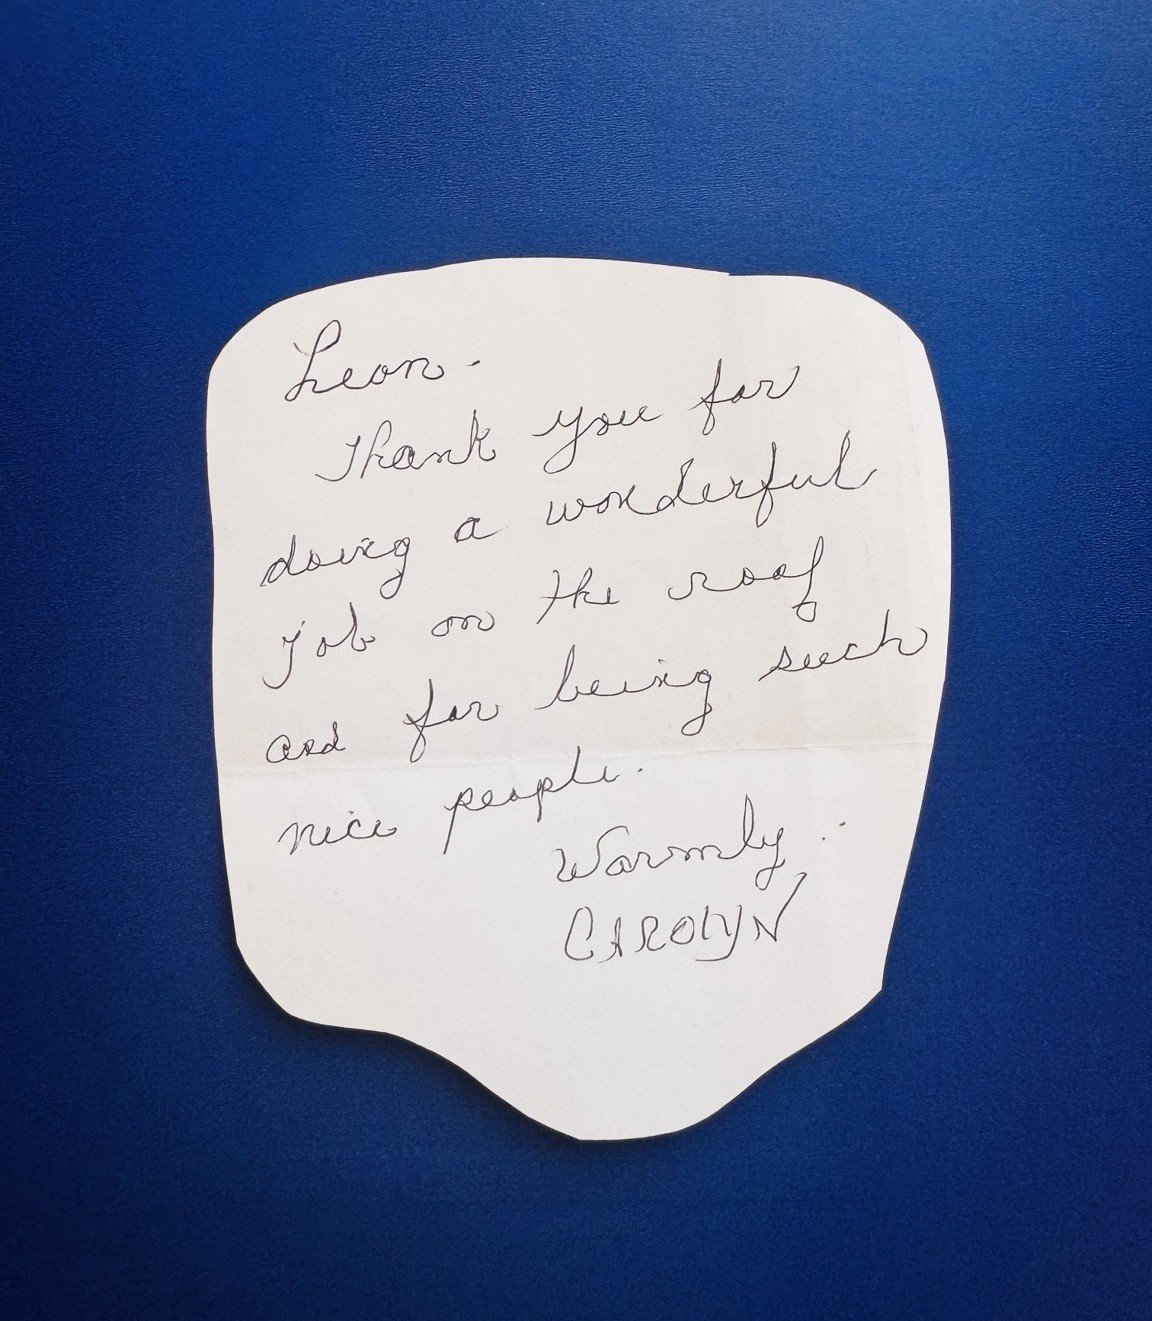 Leon.
Thank you for
doing a wonderful
job on the roof
and for being such
nice people.
Warmly..
CAROLYN